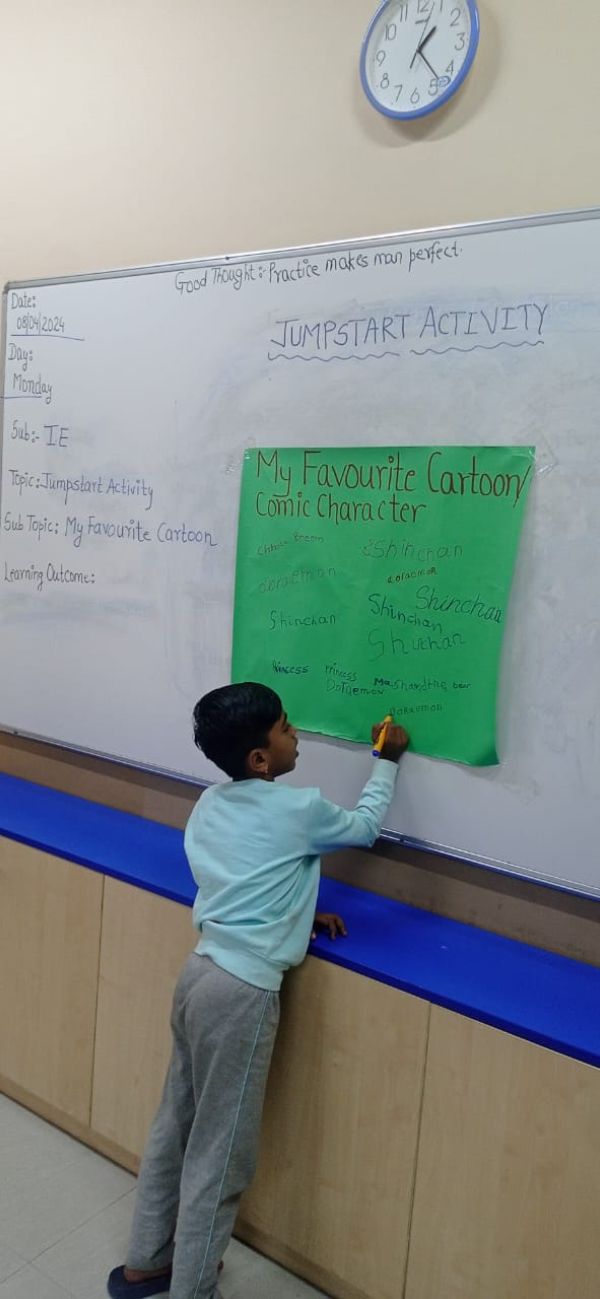 12 1 2 3 4 5 6 7 8 9 10 11
Good Thought:- Practice makes man perfect.
Date:
08/04/2024
Day:
Monday
Sub:- IE
Topic: Jumpstart Activity
Sub Topic: My Favourite Cartoon
Learning Outcome:
JUMPSTART ACTIVITY
My Favourite Cartoon/
Comic Character
Chhota Bheem
Shinchan
doraemon
doraemon
Shinchan
Shinchan
Shinchan
Shinchan
Princess
Princess
Doraemon
Masha and the bear
Doraemon